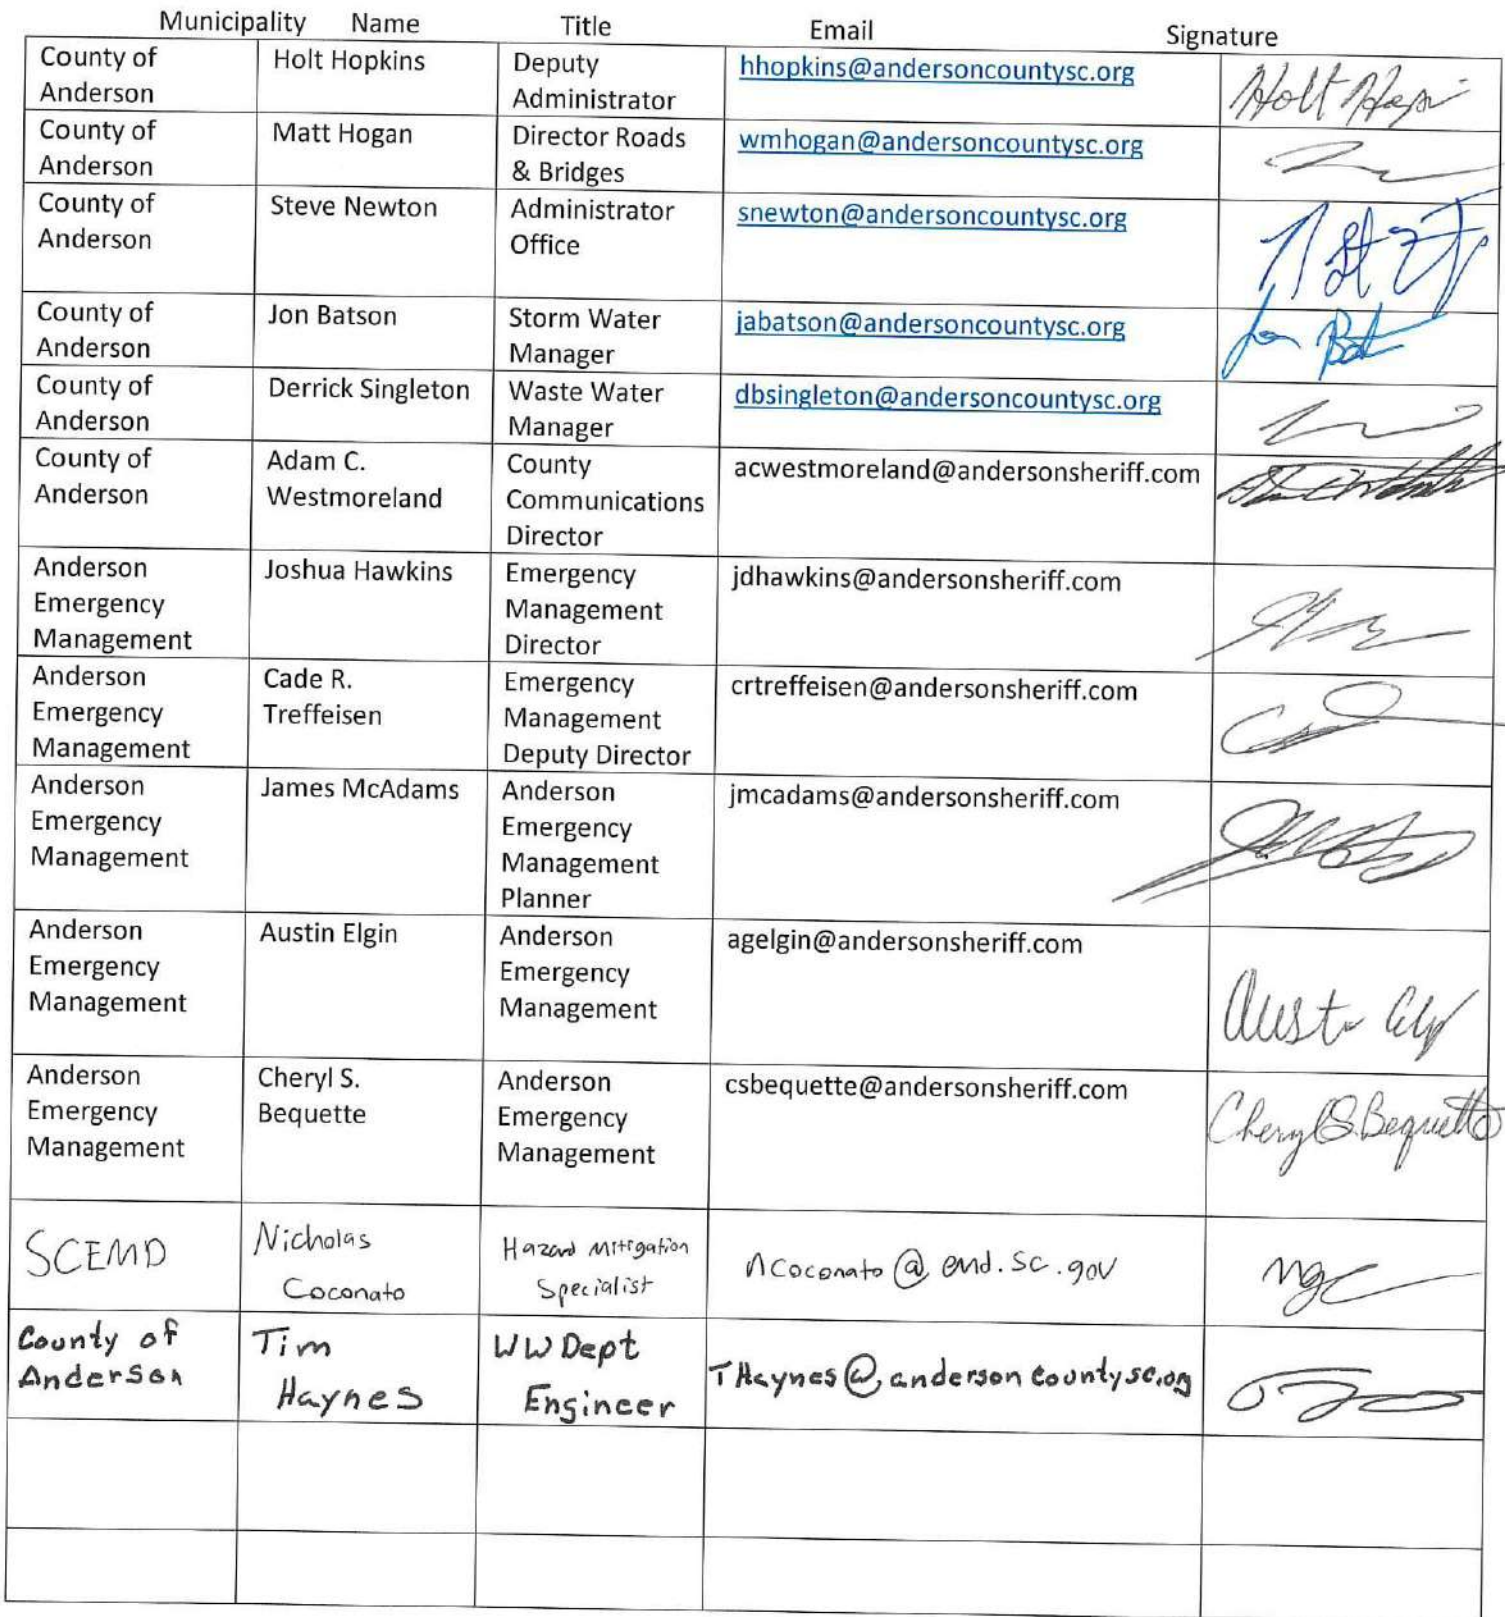 Municipality Name Title Email Signature
County of Anderson Holt Hopkins Deputy Administrator hhopkins@andersoncountysc.org Holt
County of Anderson Matt Hogan Director Roads & Bridges wmhogan@andersoncountysc.org
County of Anderson Steve Newton Administrator Office snewton@andersoncountysc.org
County of Anderson Jon Batson Storm Water Manager jabatson@andersoncountysc.org
County of Anderson Derrick Singleton Waste Water Manager dbsingleton@andersoncountysc.org
County of Anderson Adam C. Westmoreland County Communications Director acwestmoreland@andersonsheriff.com
Anderson Emergency Management Joshua Hawkins Emergency Management Director jdhawkins@andersonsheriff.com
Anderson Emergency Management Cade R. Treffeisen Emergency Management Deputy Director crtreffeisen@andersonsheriff.com
Anderson Emergency Management James McAdams Anderson Emergency Management Planner jmcadams@andersonsheriff.com
Anderson Emergency Management Austin Elgin Anderson Emergency Management agelgin@andersonsheriff.com
Anderson Emergency Management Cheryl S. Bequette Anderson Emergency Management csbequette@andersonsheriff.com Cheryl S. Bequette
SCEMD Nicholas Coconato Hazard Mitigation Specialist ncoconato@emd.sc.gov
County of Anderson Tim Haynes WW Dept Engineer THaynes@andersoncountysc.org